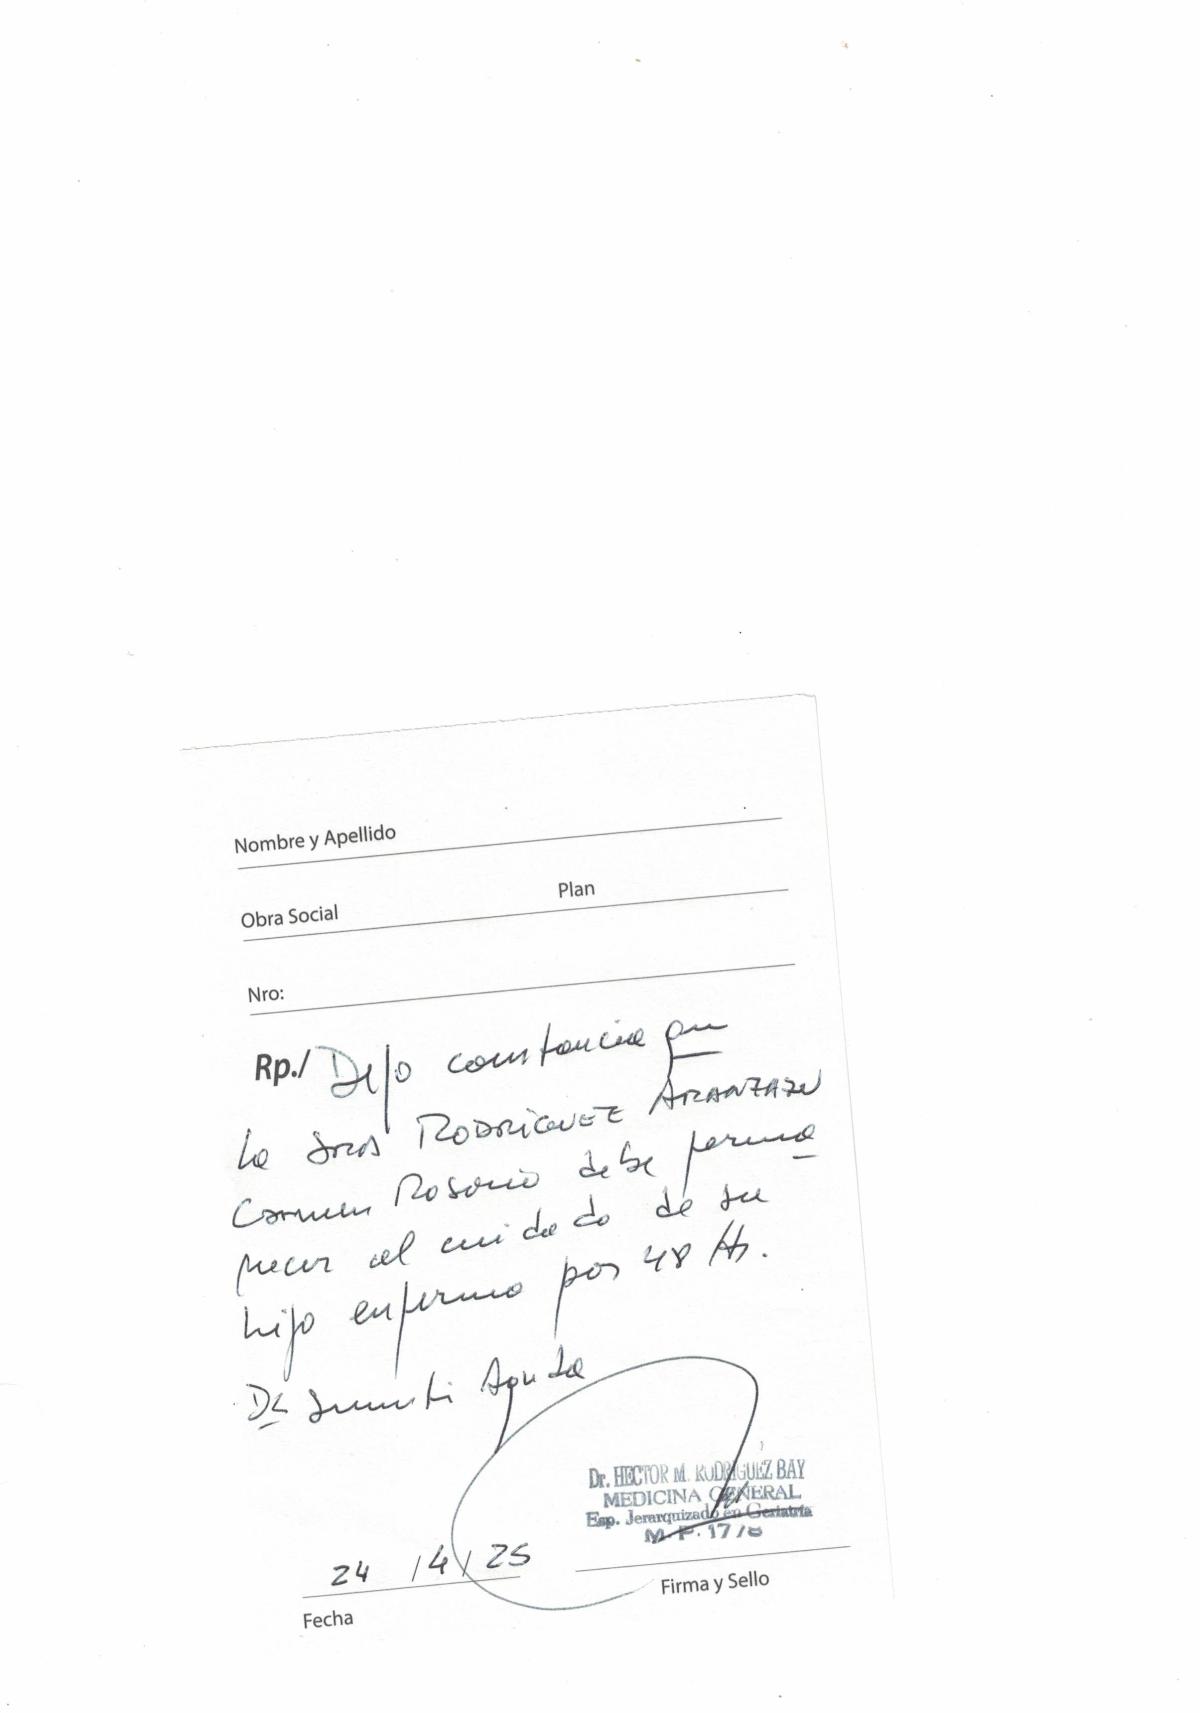 Nombre y Apellido
Obra Social Plan
Nro:
Rp./ Dejo constancia que
la Sra RODRIGUEZ ARANZAZU
Carmen Rosario debe perma
necer al cuidado de su
hijo enfermo por 48 Hs.
Ds Aguda
Dr. HECTOR M. RODRIGUEZ BAY
MEDICINA GENERAL
Esp. Jerarquizado en Geriatria
M.P. 17
24 / 4 / 25
Fecha
Firma y Sello